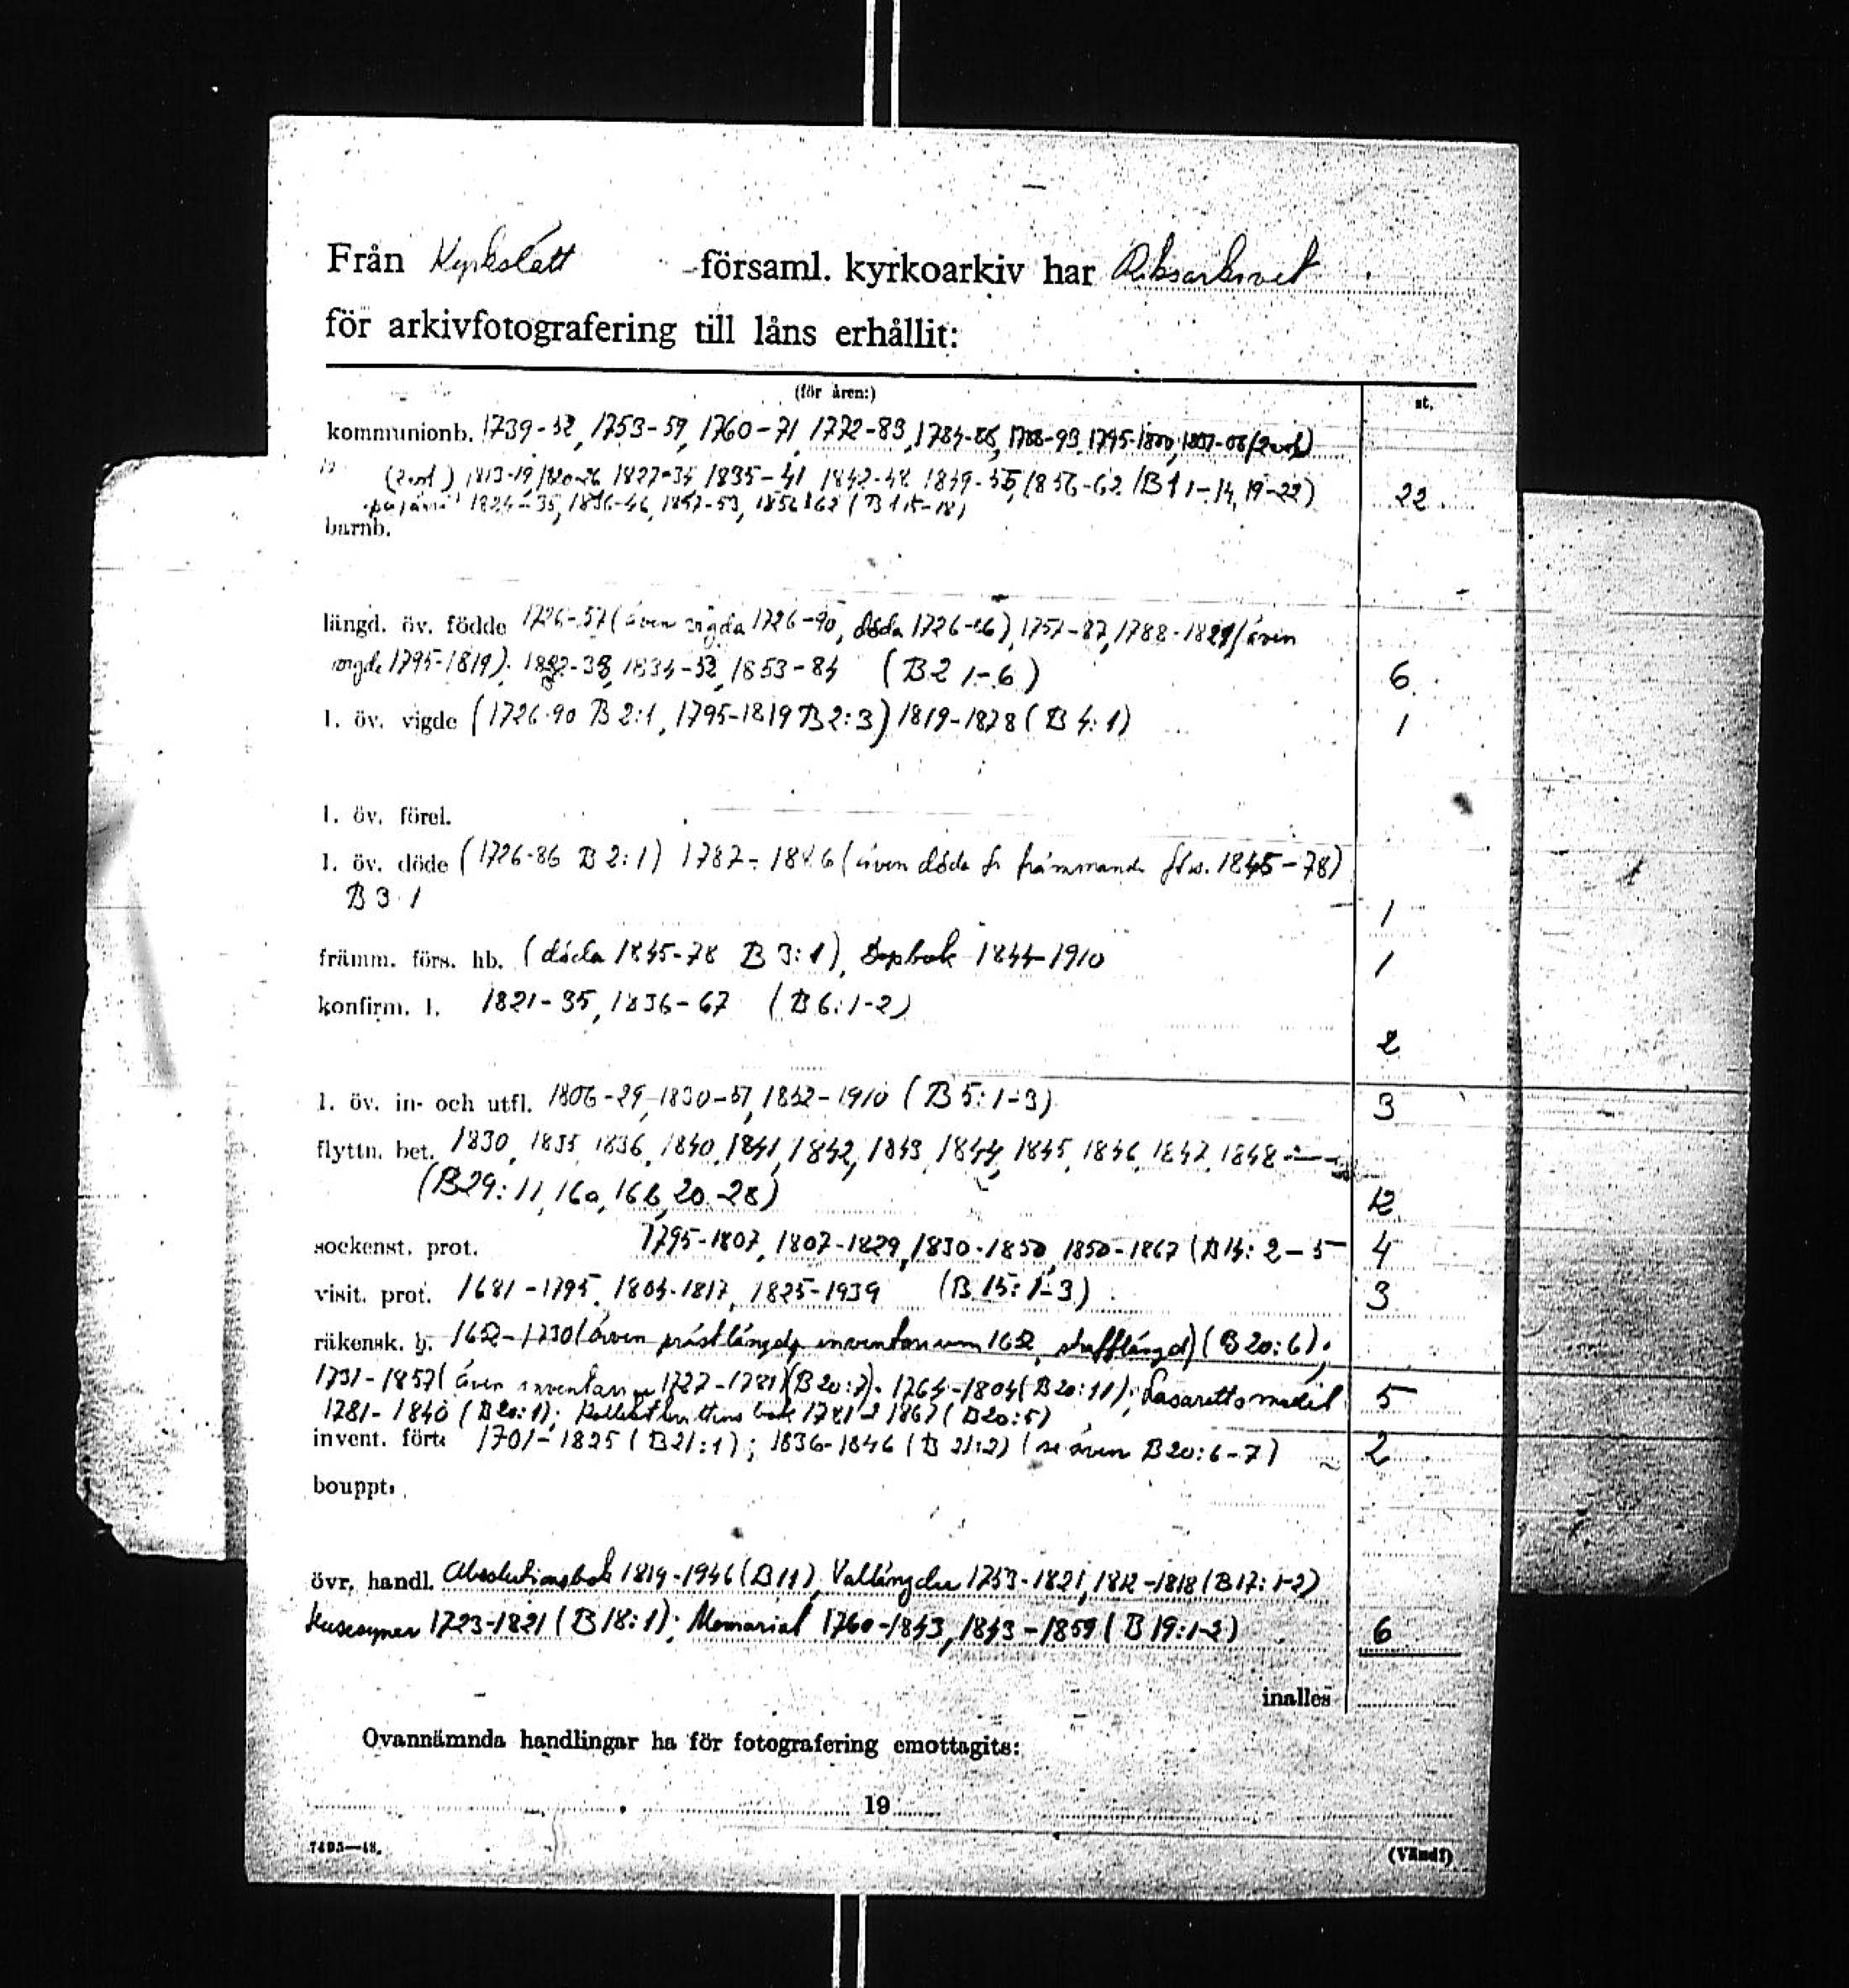 Från Kyrkslätt församl. kyrkoarkiv har Riksarkivet
för arkivfotografering till låns erhållit:
(för åren:)
st.
kommunionb. 1739-52, 1753-59, 1760-71, 1772-83, 1784-88, 1788-93, 1795-1800, 1807-08 (2 vol)
(2 vol.) 1813-19, 1820-26 1827-34 1835-41 1842-48 1849-55, 1856-62 (B 1 1-14, 19-22) 22
1824-35, 1836-46, 1847-53, 1856-62 (B 1 15-18)
barnb.
längd. öv. födde 1726-57 (även vigda 1726-90, döda 1726-86), 1757-87, 1788-1821 (även
vigde 1795-1819), 1834-52, 1853-84 (B 2 1-6) 6
l. öv. vigde (1726-90 B 2:1, 1795-1819 B 2:3) 1819-1878 (B 4:1) 1
l. öv. förel.
l. öv. döde (1726-86 B 2:1) 1787-1846 (även döda fr främmande förs. 1845-78)
B 3 1 1
främm. förs. hb. (döda 1845-78 B 3:1), Dopbok 1844-1910 1
konfirm. l. 1821-35, 1836-67 (B 6:1-2)
2
l. öv. in- och utfl. 1806-29, 1830-51, 1852-1910 (B 5:1-3) 3
flyttn. bet. 1830, 1835, 1836, 1840, 1841, 1842, 1843, 1844, 1845, 1846, 1847, 1848
(B 29: 11, 16a, 16b, 20-28) 12
sockenst. prot. 1795-1807, 1807-1829, 1830-1850, 1850-1867 (B 14: 2-5 4
visit. prot. 1681-1795, 1804-1817, 1825-1939 (B 15:1-3) 3
räkensk. b. 1652-1730 (även prästlängd, inventarium 1652, stafflängd) (B 20:6);
1731-1857 (även inventarium 1727-1781) (B 20:7). 1764-1804 (B 20:11); Lasarettsmedel 5
1781-1840 (B 20:1); Kollektkvittens bok 1781-1867 (B 20:5)
invent. fört. 1701-1825 (B 21:1); 1836-1846 (B 21:2) (se även B 20:6-7) 2
bouppt.
övr. handl. Absolutionsbok 1819-1946 (B 11), Vallängder 1753-1821, 1812-1818 (B 17: 1-2)
Husesyner 1723-1821 (B 18:1); Memorial 1760-1843, 1843-1859 (B 19:1-2) 6
inalles
Ovannämnda handlingar ha för fotografering emottagits:
19
7495—48.
(Vänd!)